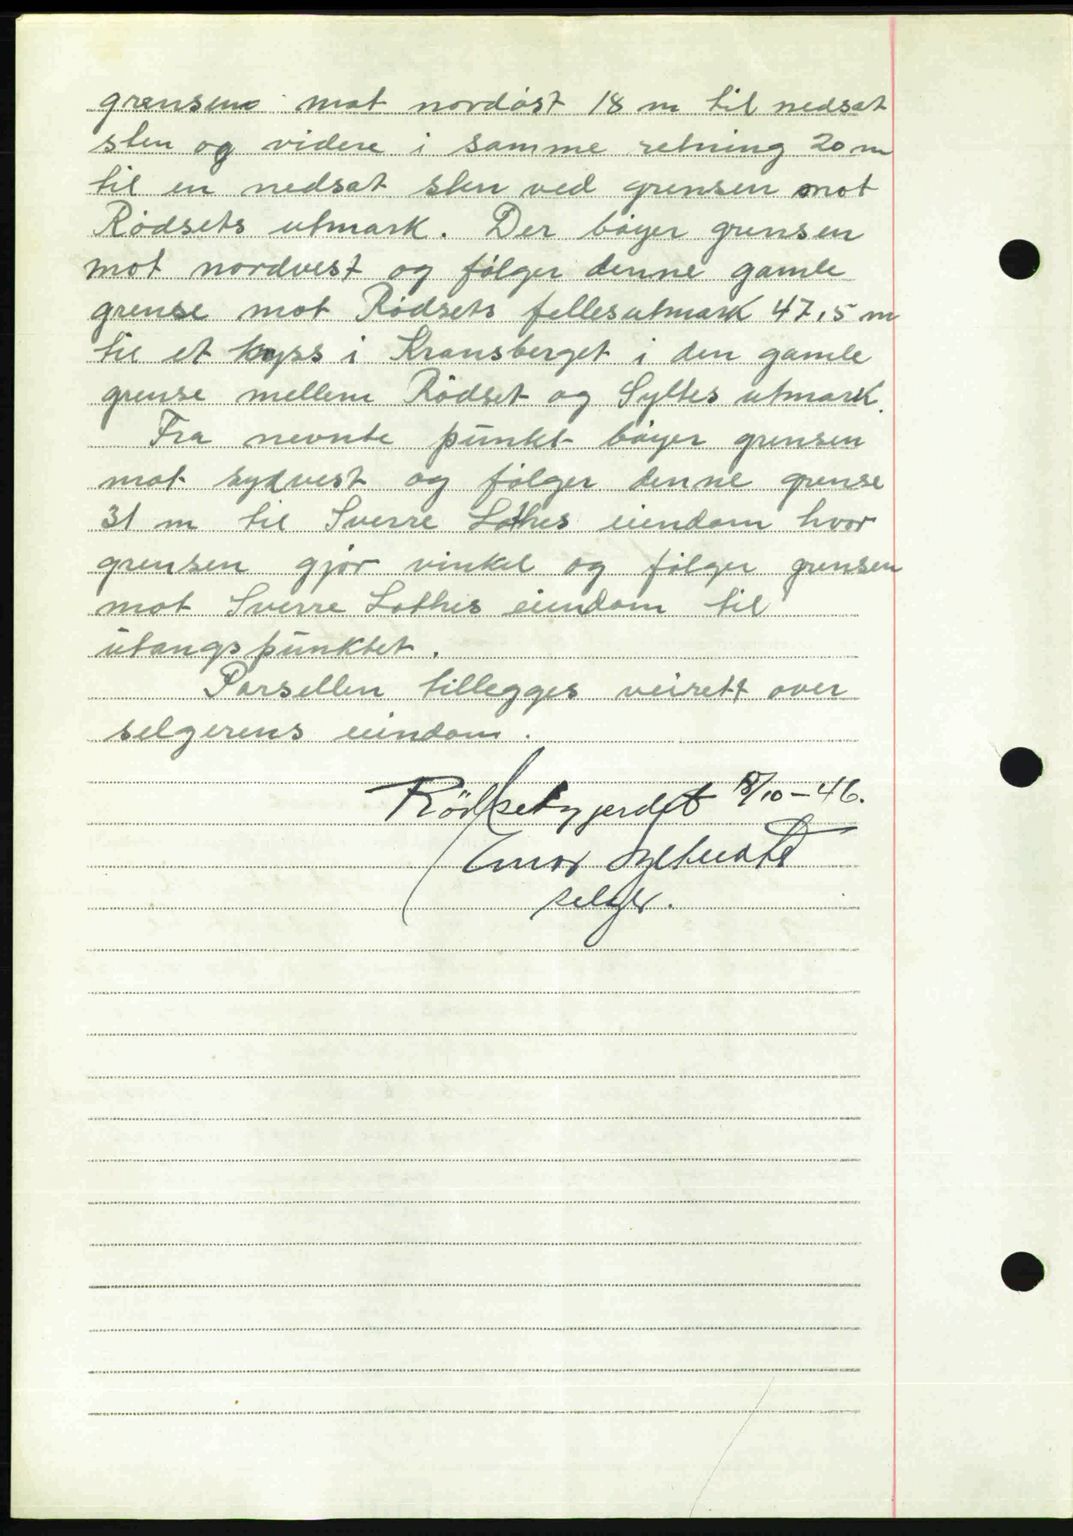 grensen mot nordøst 18 m til nedsat
sten og videre i samme retning 20 m
til en nedsat sten ved grensen mot
Rødsets utmark. Der bøyer grensen
mot nordvest og følger denne gamle
grense mot Rødsets fellesutmark 47,5 m
til et kryss i Kransberget i den gamle
grense mellem Rødset og Syltes utmark.
Fra nevnte punkt bøyer grensen
mot sydvest og følger denne grense
31 m til Sverre Lothes eiendom hvor
grensen gjør vinkel og følger grensen
mot Sverre Lothes eiendom til
utangspunktet.
Parsellen tillegges veirett over
selgerens eiendom.
/10-46.
selger.